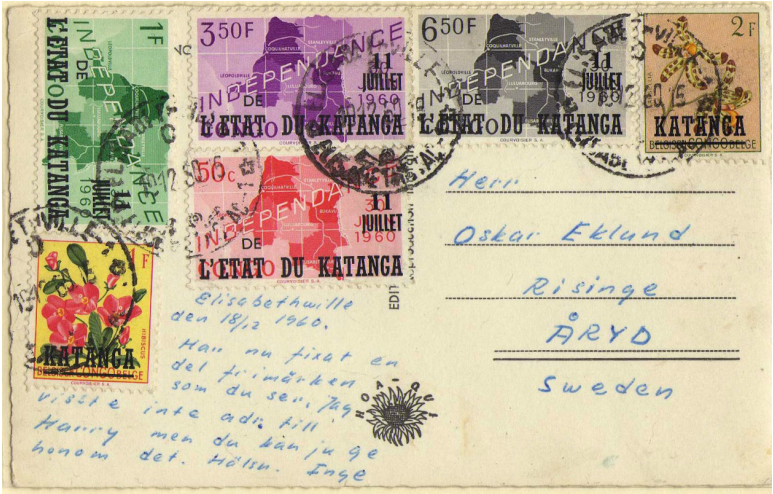 1F
INDEPENDANCE
DE
CONGO
11
JUILLET
1960
L'ETAT DU KATANGA
3,50F
INDEPENDANCE
11
JUILLET
1960
DE
L'ETAT DU KATANGA
6,50F
INDEPENDANCE
11
JUILLET
1960
DE
L'ETAT DU KATANGA
2F
KATANGA
BELGISCH CONGO BELGE
50c
INDEPENDANCE
11
JUILLET
1960
DE
L'ETAT DU KATANGA
1F
HIBISCUS
KATANGA
BELGISCH CONGO BELGE
Elisabethville
den 18/12 1960.
Har nu fixat en
del frimärken
som du ser. Jag
visste inte adr. till
Harry men du kan ju ge
honom det. Hälsn. Inge
HOA-QUI
Herr
Oskar Eklund
Risinge
ÅRYD
Sweden